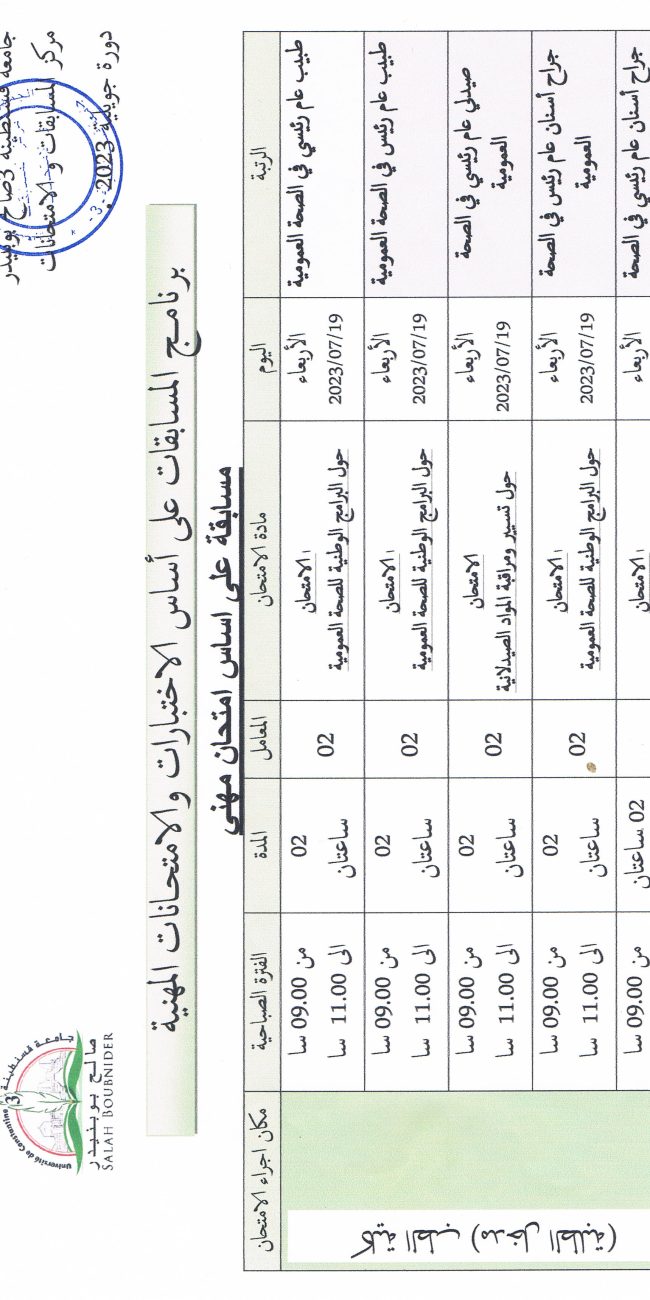 جامعة قسنطينة 3 صالح بوبنيدر
مركز المسابقات و الامتحانات
دورة جويلية 2023
جامعة قسنطينة 3
Université de Constantine 3
صالح بوبنيدر
SALAH BOUBNIDER
برنامج المسابقات على أساس الاختبارات والامتحانات المهنية
مسابقة على اساس امتحان مهني
الرتبة اليوم مادة الامتحان المعامل المدة الفترة الصباحية مكان اجراء الامتحان
طبيب عام رئيسي في الصحة العمومية الأربعاء الامتحان 02 02 من 09.00 سا
2023/07/19 حول البرامج الوطنية للصحة العمومية ساعتان الى 11.00 سا
طبيب عام رئيس في الصحة العمومية الأربعاء الامتحان 02 02 من 09.00 سا
2023/07/19 حول البرامج الوطنية للصحة العمومية ساعتان الى 11.00 سا
صيدلي عام رئيسي في الصحة الأربعاء الامتحان 02 02 من 09.00 سا
العمومية 2023/07/19 حول تسيير ومراقبة المواد الصيدلانية ساعتان الى 11.00 سا
جراح أسنان عام رئيس في الصحة الأربعاء الامتحان 02 02 من 09.00 سا
العمومية 2023/07/19 حول البرامج الوطنية للصحة العمومية ساعتان الى 11.00 سا
جراح أسنان عام رئيسي في الصحة الأربعاء الامتحان 02 ساعتان من 09.00 سا
كلية الطب (مدخل الطلبة)